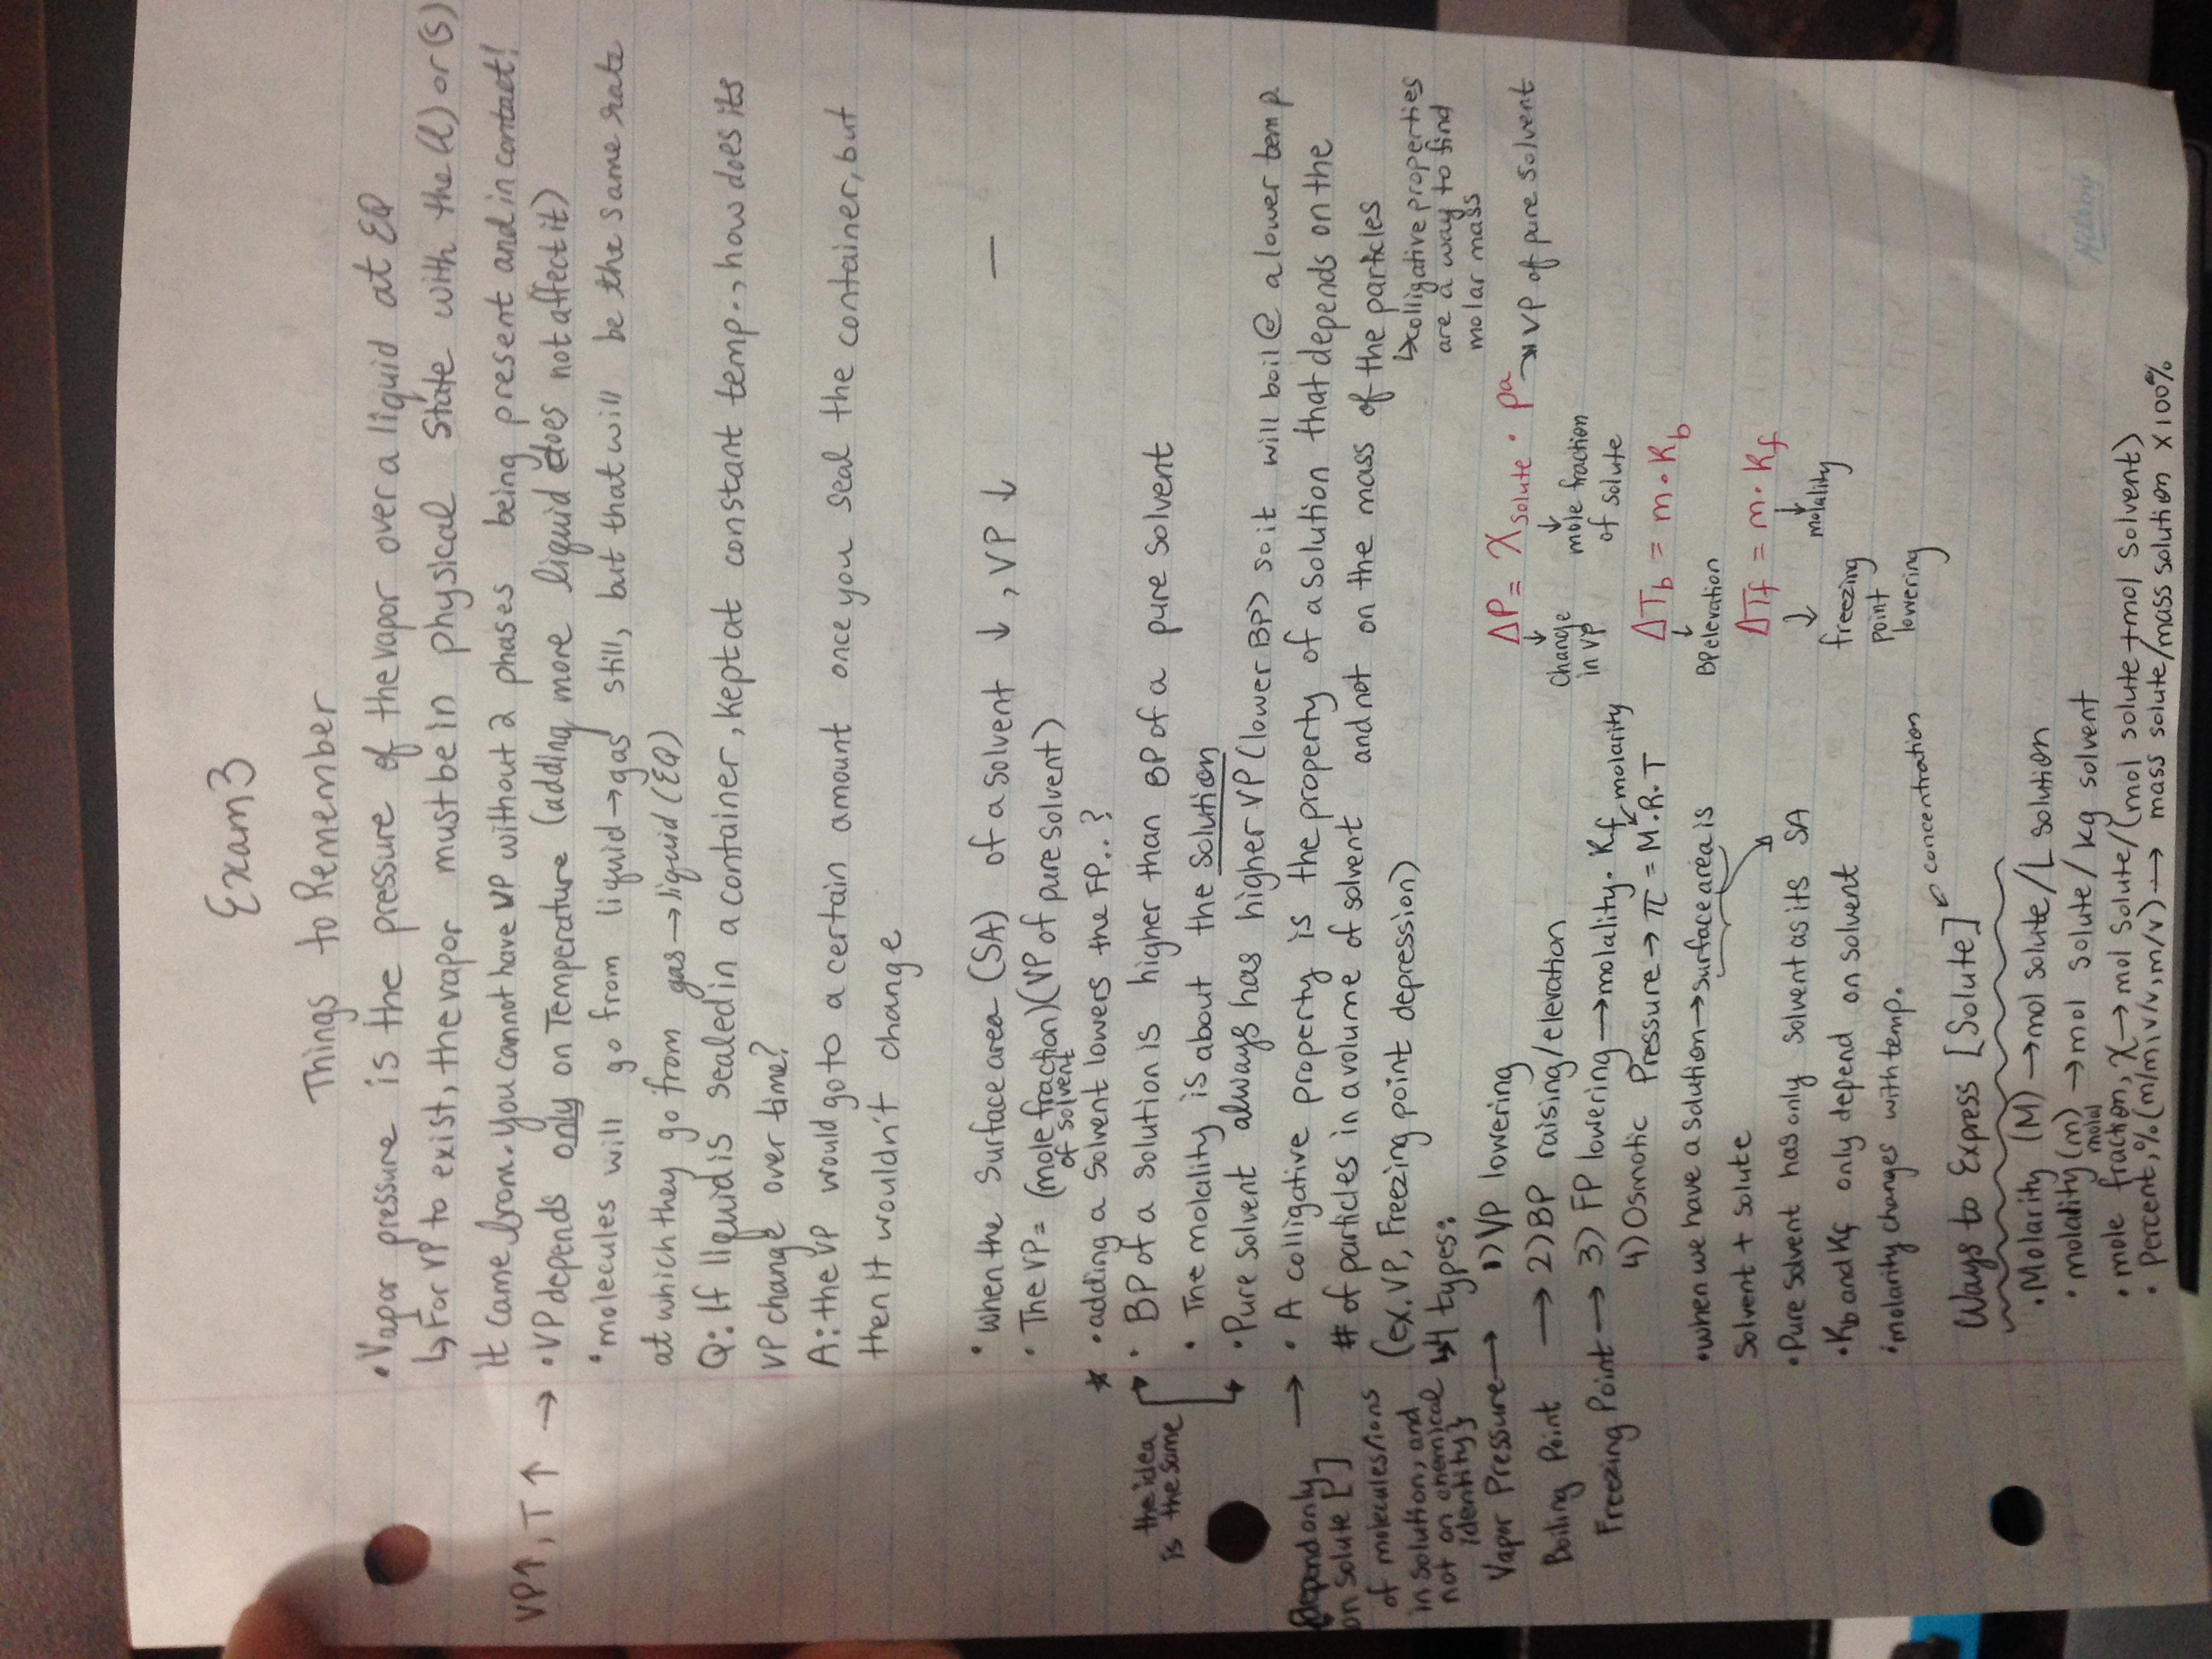 Exam 3
Things to Remember
• Vapor pressure is the pressure of the vapor over a liquid at EQ
↳ For VP to exist, the vapor must be in physical state with the (l) or (s)
it came from. You cannot have VP without 2 phases being present and in contact!
VP↑, T↑ → • VP depends only on Temperature (adding more liquid does not affect it)
• molecules will go from liquid → gas still, but that will be the same rate
at which they go from gas → liquid (EQ)
Q: If liquid is sealed in a container, kept at constant temp., how does its
VP change over time?
A: the VP would go to a certain amount once you seal the container, but
then it wouldn't change
• When the surface area (SA) of a solvent ↓, VP ↓ —
• The VP = (mole fraction of solvent)(VP of pure solvent)
* • adding a solvent lowers the FP..?
the idea is the same
• BP of a solution is higher than BP of a pure solvent
• The molality is about the solution
• Pure solvent always has higher VP (lower BP) so it will boil @ a lower temp
→ • A colligative property is the property of a solution that depends on the
# of particles in a volume of solvent and not on the mass of the particles
(ex. VP, Freezing point depression)
↳ colligative properties
are a way to find
molar mass
Depend only
on solute [ ]
of molecules/ions
in solution, and
not on chemical
identity}
↳ 4 types:
Vapor Pressure → 1) VP lowering
Boiling Point → 2) BP raising/elevation
Freezing Point → 3) FP lowering → molality · Kf
4) Osmotic Pressure → π = M·R·T
molarity
ΔP = X solute · Pa → VP of pure solvent
change in VP
mole fraction of solute
ΔTb = m · Kb
BP elevation
ΔTf = m · Kf
freezing point lowering
molality
• when we have a solution → surface area is
solvent + solute
• Pure solvent has only solvent as its SA
• Kb and Kf only depend on solvent
• molarity changes with temp.
Ways to Express [Solute]
concentration
• Molarity (M) → mol solute / L solution
• molality (m) → mol solute / kg solvent
molal
• mole fraction, X → mol solute / (mol solute + mol solvent)
• Percent, % (m/m, v/v, m/v) → mass solute/mass solution x 100%